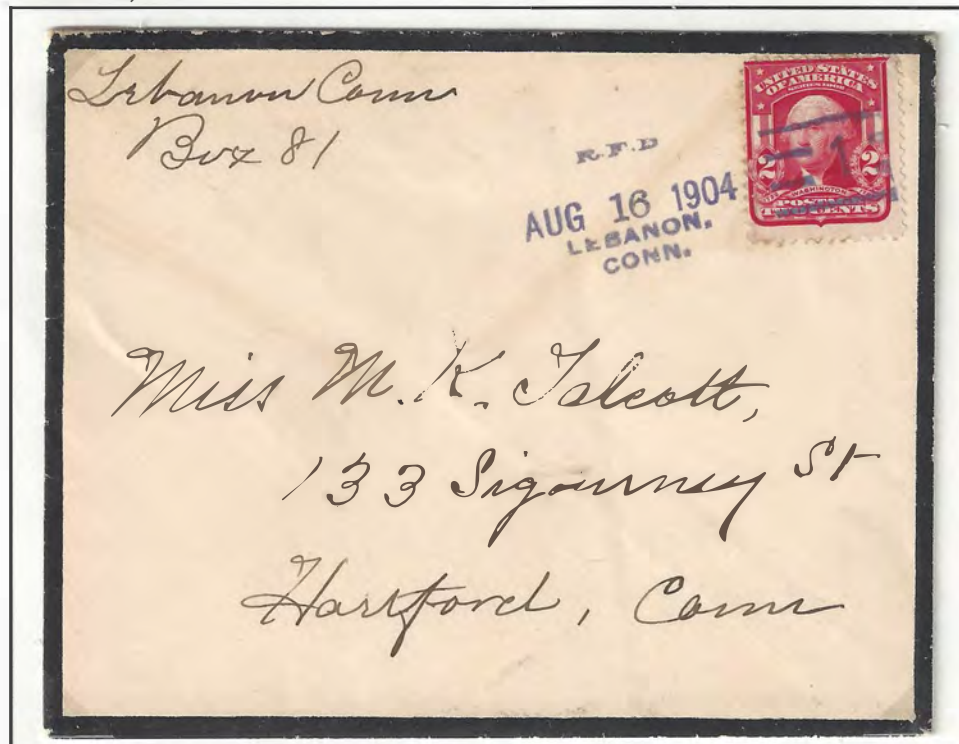 Lebanon Conn
Box 81
R.F.D
AUG 16 1904
LEBANON.
CONN.
UNITED STATES
OF AMERICA
SERIES 1902
2 2
WASHINGTON
POSTAGE
TWO CENTS
Miss M. K. Talcott,
133 Sigourney St
Hartford, Conn